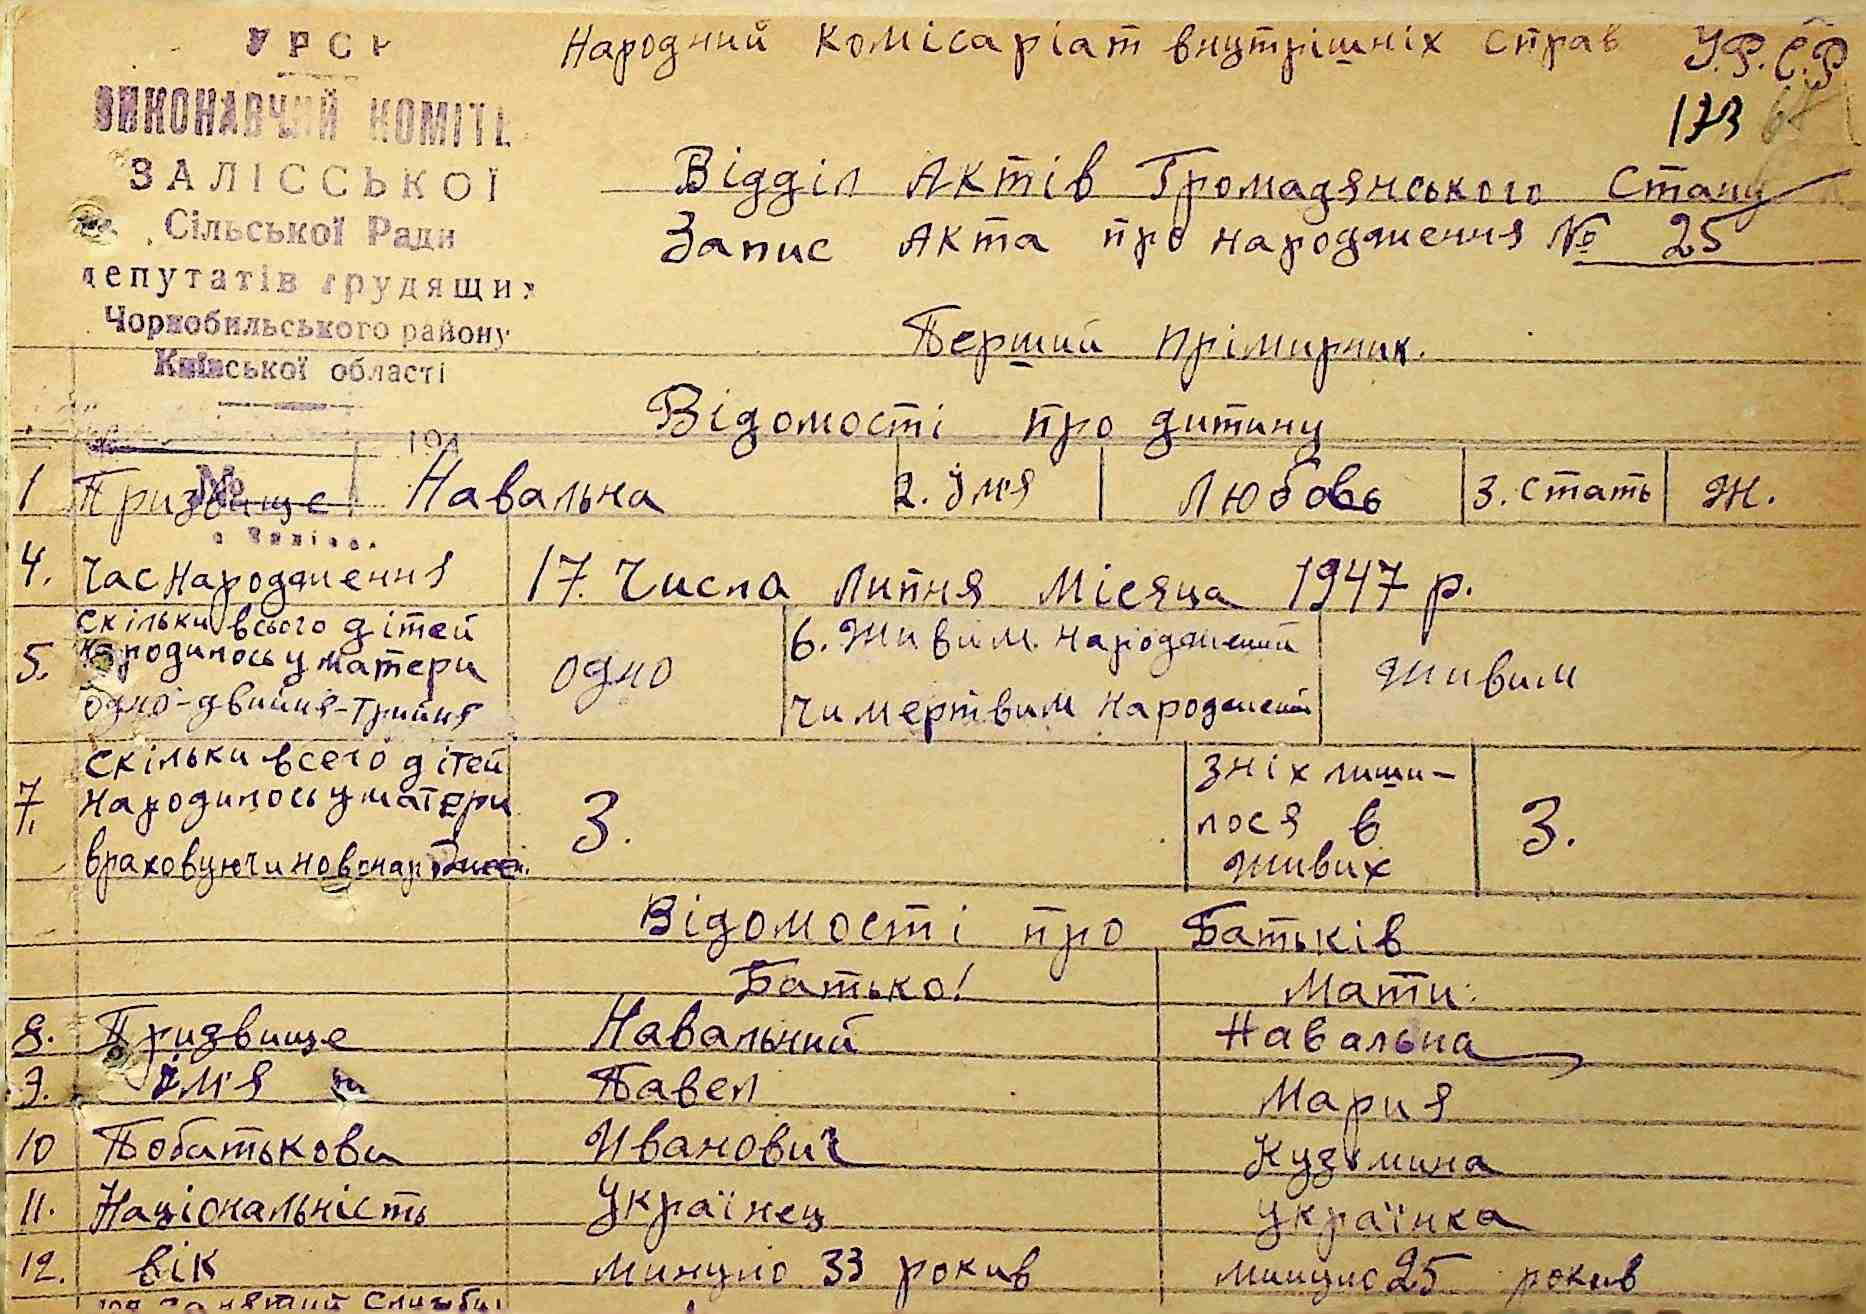 УРСР
ВИКОНАВЧИЙ КОМІТЕ
ЗАЛІССЬКОЇ
Сільської Ради
депутатів трудящих
Чорнобильського району
Київської області
194
№
Народний Комісаріат внутрішніх справ У.Р.С.Р
173
Відділ Актів Громадянського Стану
Запис Акта про народження № 25
Перший прімирник.
Відомості про дитину
1 Призвище Навальна 2. Імя Любовь 3. Стать Ж.
4. Час народження 17. Числа Липня Місяца 1947 р.
5. Скільки всього дітей народилось у матери одно-двийня-трийня одно 6. Живим народжений чи мертвим народжений живим
7. Скільки всего дітей народилось у матери враховуючи 3. З них лиши-лося в живих 3.
Відомості про Батьків
Батько! Мати:
8. Призвище Навальний Навальна
9. імя Павел Мария
10 Побатькови Иванович Кузьмина
11. Національність Українец Українка
12. вік минуло 33 рокив минуло 25 рокив